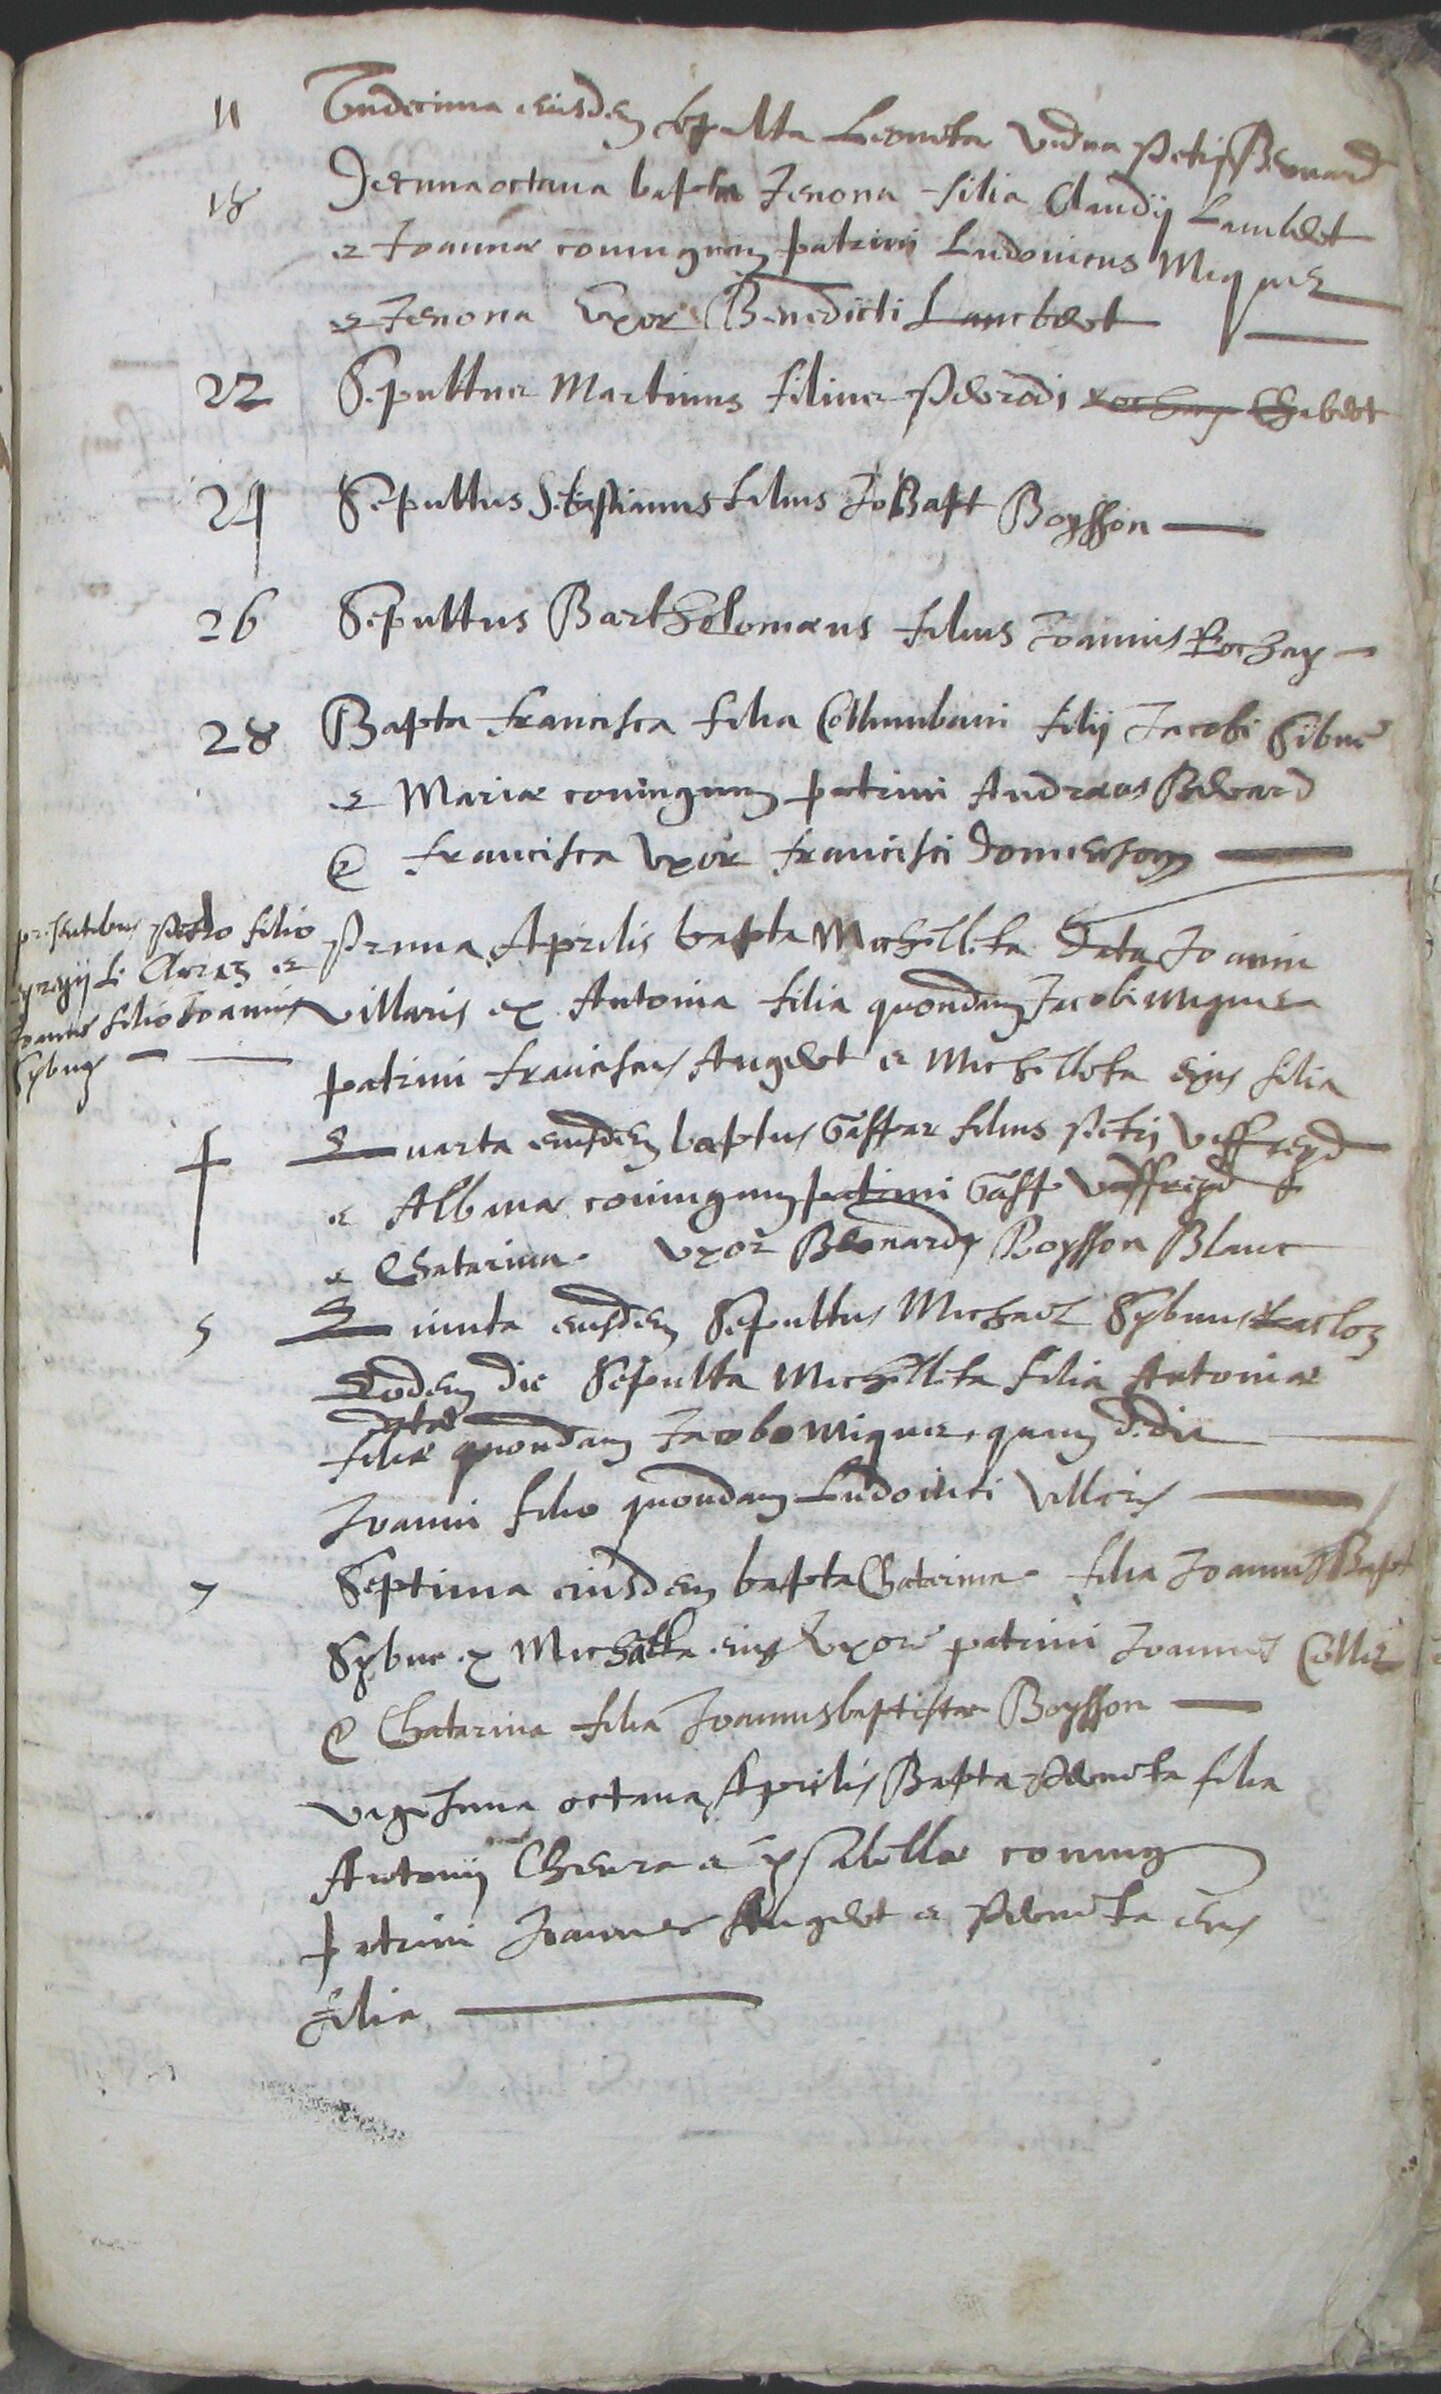 11 Undecima eiusdem sepulta Leoneta vidua Petri Bernard
18 Decimaoctava bapta Jenona filia Claudij Lambert
et Joannæ coniugum patrini Ludovicus Miquer
et Jenona Uxor Benedicti Lambert
22 Sepultus Martinus filius Peirodi Rochay Chabert
24 Sepultus Sebastianus filius Jo Bapt Boysson
26 Sepultus Bartholomæus filius Joannis Rochay
28 Bapta Francisca filia Collumbani filij Jacobi Sibue
et Mariæ coniugum patrini Andræas Bérard
& Francisca Uxor Francisci Domenson
presentibus Petro filio
egregij L. Claraz et
Joanne filio Joannis
Sybue
Prima Aprilis bapta Michelleta data Joanni
Villaris ex Antonia filia quondam Jacobi Miquer
patrini Franciscus Angelot et Michelleta eius filia
Quarta eiusdem baptus Gaspar filius Petri Veffreyd
et Albanæ coniugum patrini Gasp Veffreyd
et Chatarina Uxor Bernardi Boysson Blanc
5 Quinta eiusdem Sepultus Michael Sybue
Eodem die Sepulta Michelleta filia Antoniæ
filiæ quondam Jacobo Miquer, quam dedit
Joanni filio quondam Ludovici Villaris
7 Septima eiusdem bapta Chaterina filia Joannis Bapt
Sybue ex Michælla eius Uxore patrini Joannes Collet
& Chatarina filia Joannisbaptistæ Boysson
Vigesima octava Aprilis Bapta Perneta filia
Antonij Cheura et Ysabellæ coniug
patrini Joannes Angelot et Perneta eius
filia